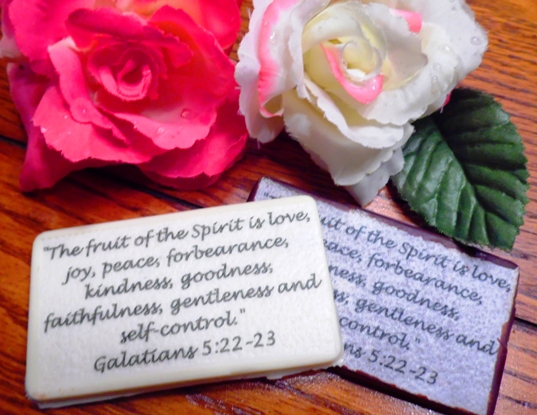 "The fruit of the Spirit is love,
joy, peace, forbearance,
kindness, goodness,
faithfulness, gentleness and
self-control."
Galatians 5:22-23
uit of the Spirit is love,
eace, forbearance,
ness, goodness,
s, gentleness and
control."
s 5:22-23